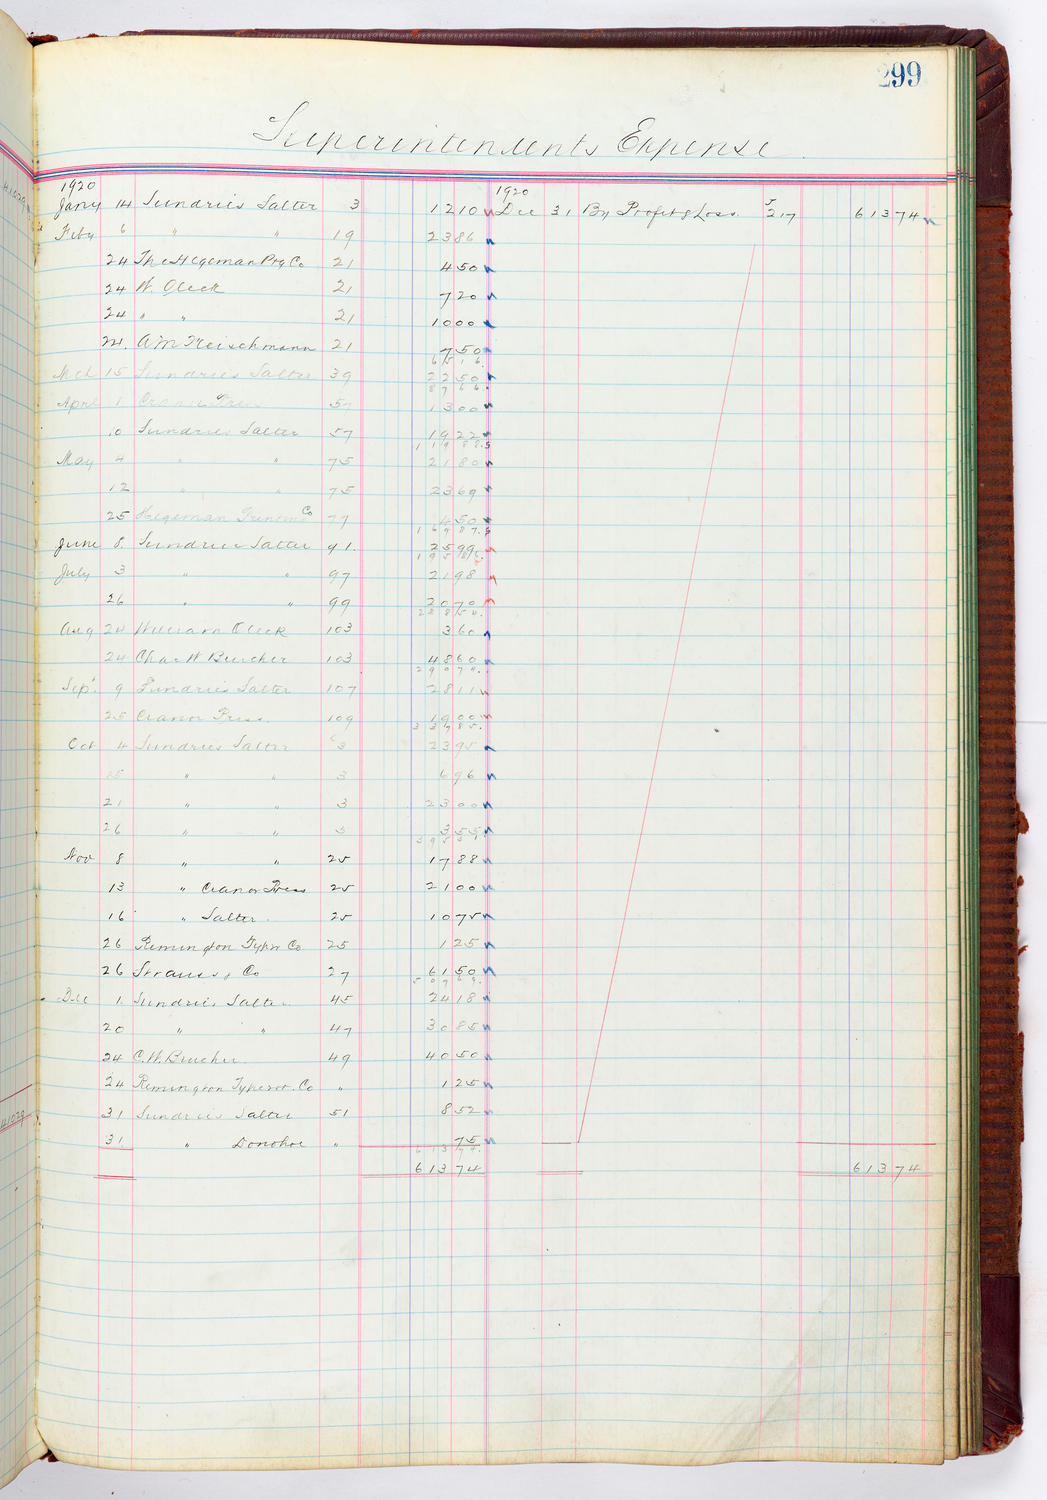 299
Superintendents Expense
1920
Jany 14 Sundries Salter 3 1210
Feby 6 " " 19 2386
24 The Hegeman Prg Co 21 450
24 W. Oleck 21 720
24 " " 21 1000
24. A M Fleischmann 21 750
6516.
Mch 15 Sundries Salter 39 2250
8766.
April 1 Cranor Press 57 1300
10 Sundries Salter 57 1922
11988.
May 4 " " 75 2180
12 " " 75 2369
25 Hegeman Printing Co 77 450
16987.
June 8. Sundries Salter 91. 2599
1958
July 3 " " 97 2198
26 " " 99 2070
Aug 24 William Oleck 103 360
24 Chas W Buecher 103 4860
29074.
Sep. 9 Sundries Salter 107 2811
25 Cranor Press. 109 1900
33785.
Oct 4 Sundries Salter 3 2395
15 " " 3 696
21 " " 3 2300
26 " " 3 355
Nov 8 " " 25 1788
13 " Cranor Press 25 2100
16 " Salter. 25 1075
26 Remington Typwr Co 25 125
26 Strauss & Co 27 6150
50769.
Dec 1. Sundries Salter 45 2418
20 " " 47 3085
24 C. W. Buecher 49 4050
24 Remington Typewr. Co " 125
31 Sundries Salter 51 852
31 " Donohoe " 75
61374.
61374
1920
Dec 31 By Profit & Loss. J 217 61374
61374
41029
41029